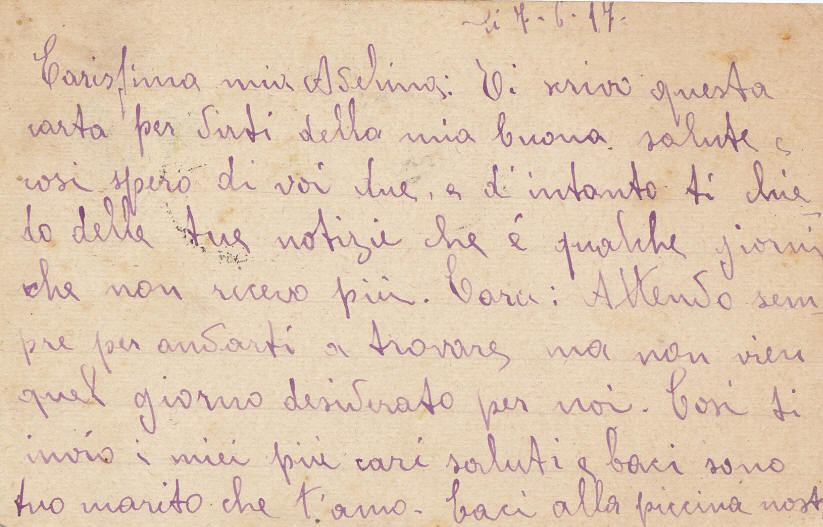 Li 7-6-17-
Carissima mia Adelina: Ti scrivo questa
carta per dirti della mia buona salute e
così spero di voi due, e d'intanto ti chie-
do delle tue notizie che é qualche giorni
che non ricevo più. Cara: Attendo sem-
pre per andarti a trovare, ma non vien
quel giorno desiderato per noi. Cosi ti
invio i miei più cari saluti e baci sono
tuo marito che t'amo. Baci alla piccina nost